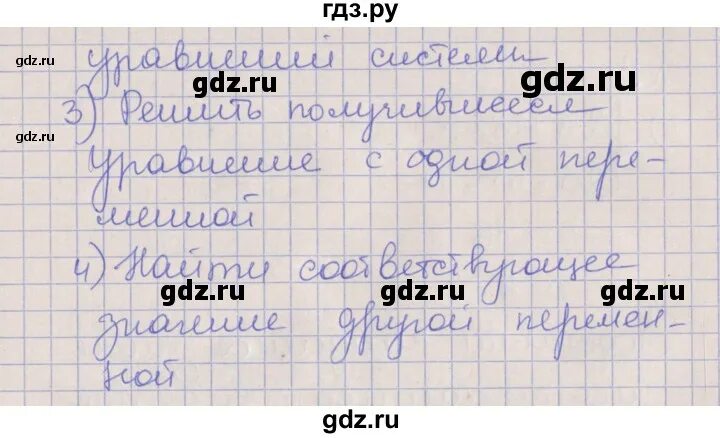 гдз.ру
уравнений системы
gdz.ru
gdz.ru
gdz.ru
3) Решить получившееся
gdz.ru
уравнение с одной пере-
менной
4) Найти соответствующее
gdz.ru
gdz.ru
gdz.ru
значение другой перемен-
ной
gdz.ru